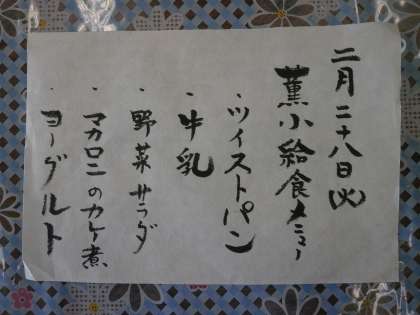 二月二十八日(火)
薫小給食メニュー
・ツイストパン
・牛乳
・野菜サラダ
・マカロニのカケ煮
・ヨーグルト